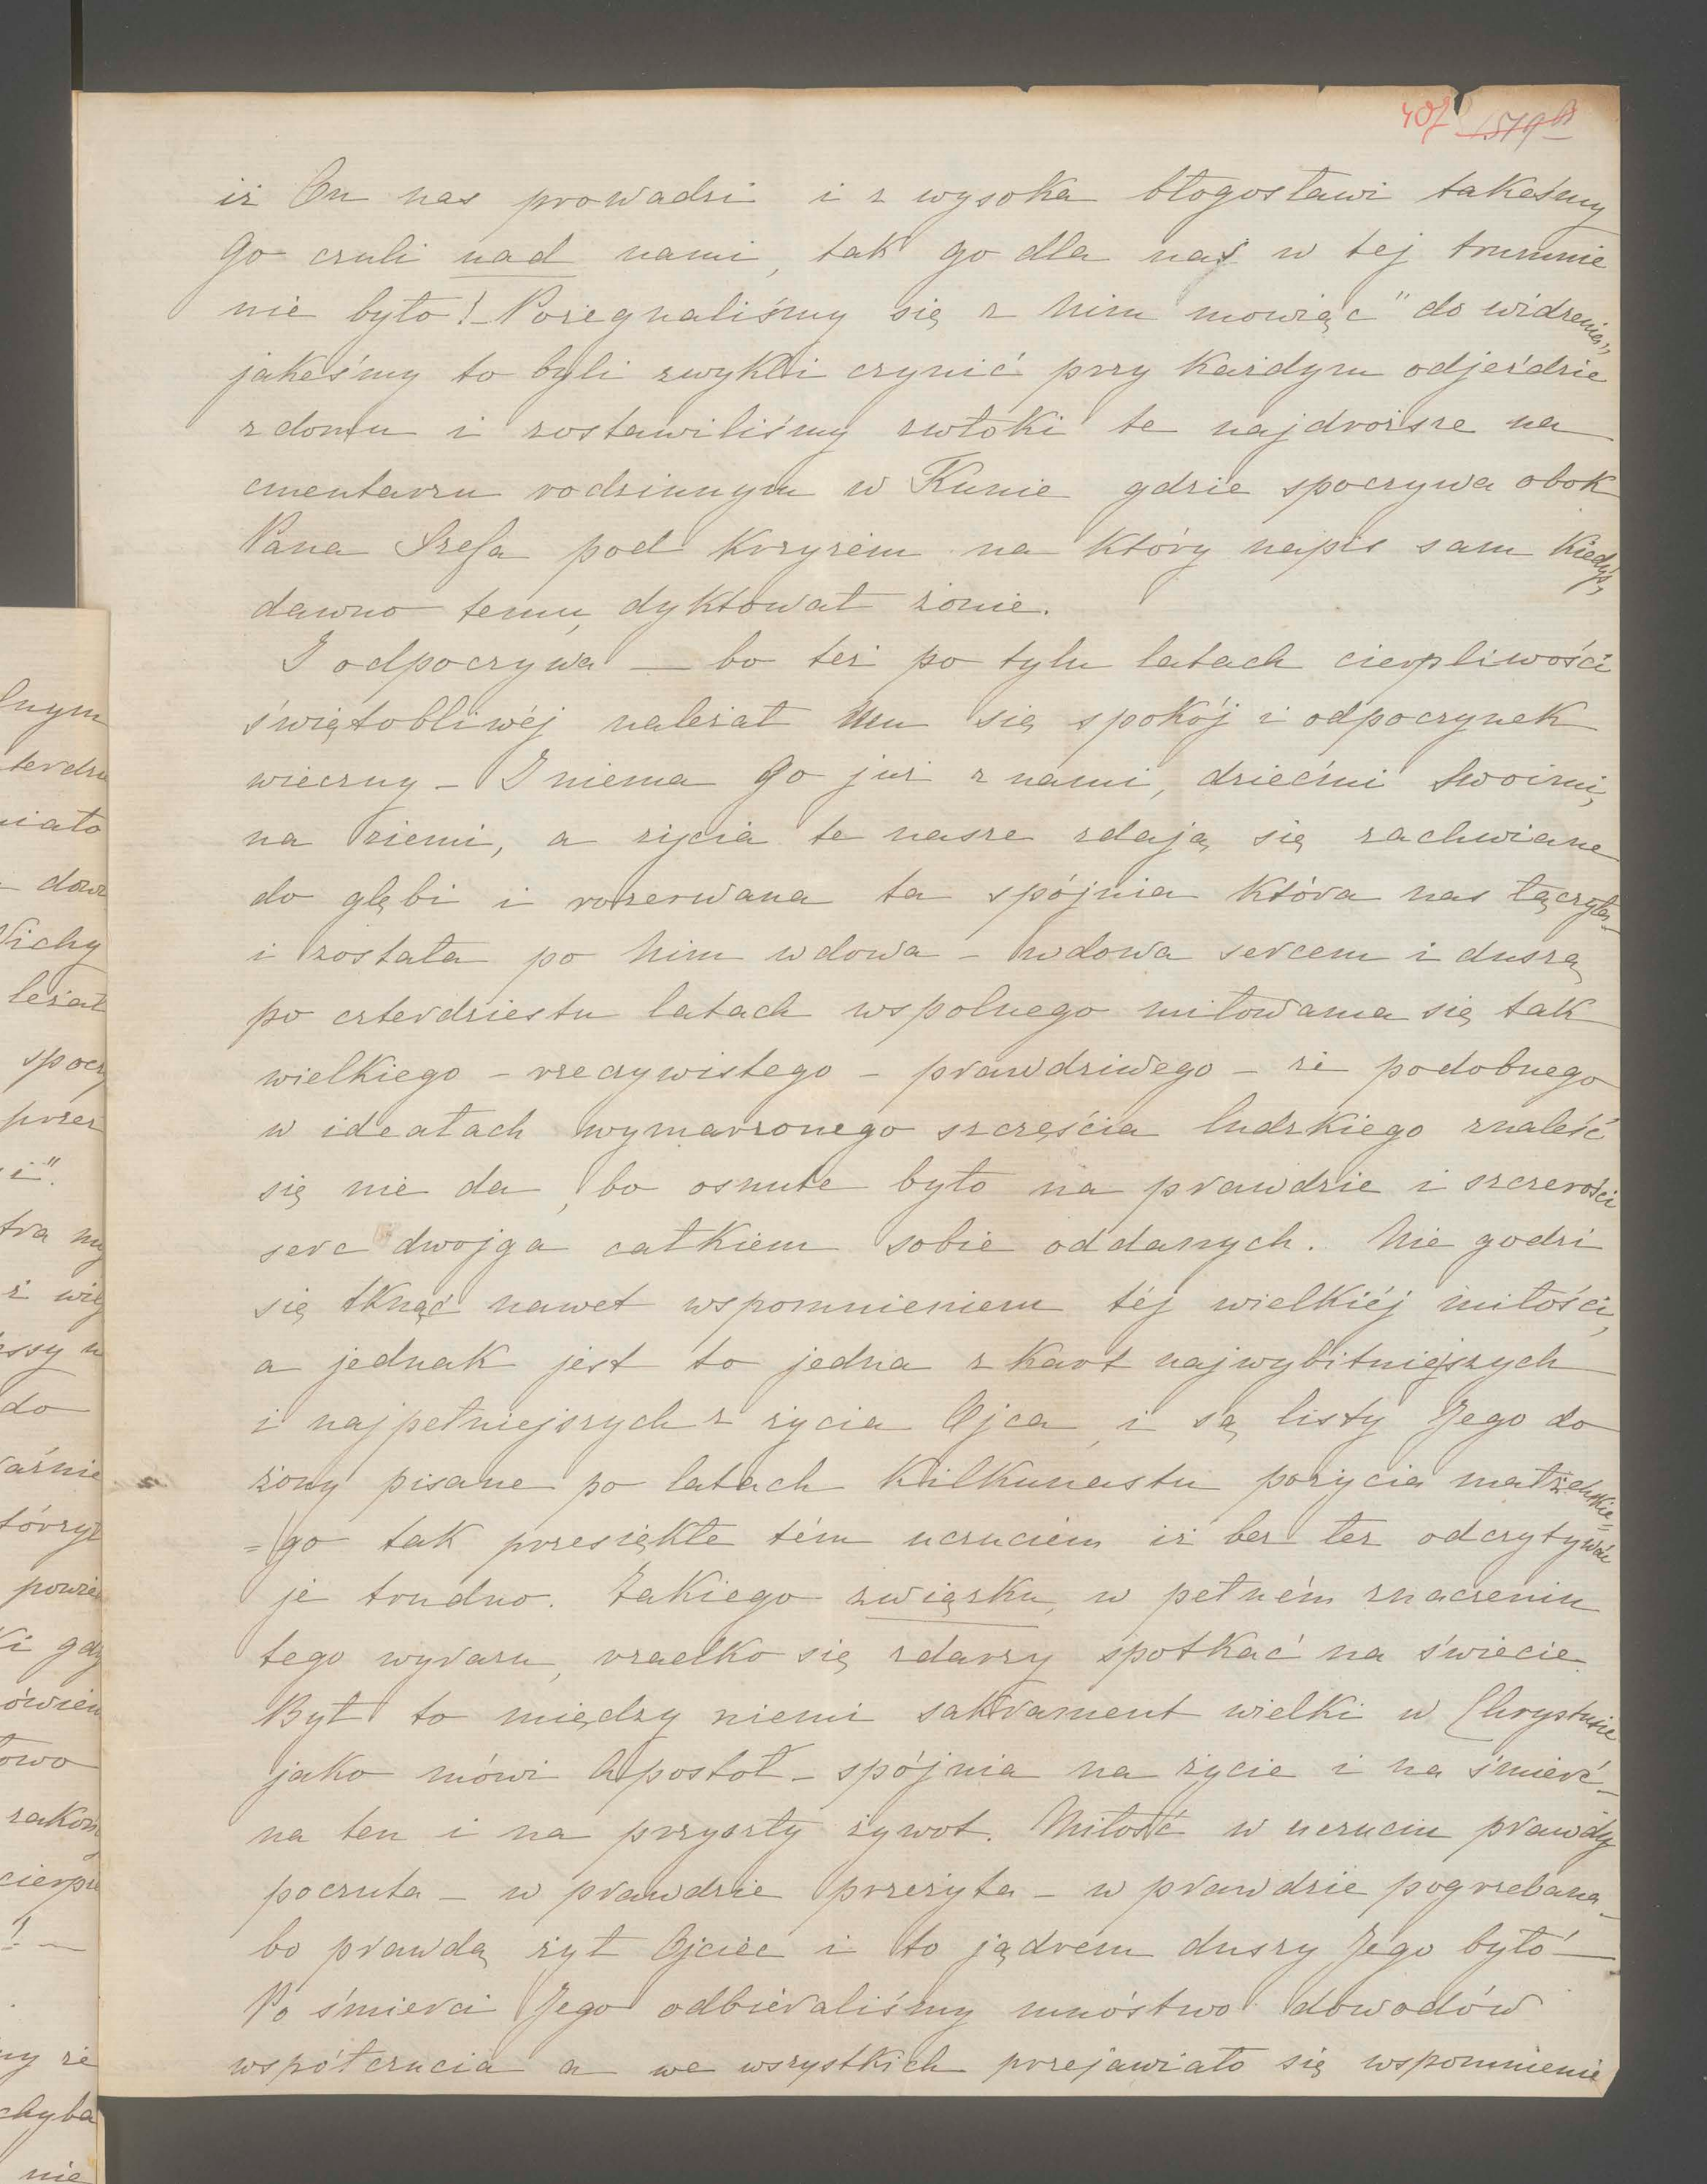 407 1579 B
iż On nas prowadzi i z wysoka błogosławi takeśmy
Go czuli nad nami, tak go dla nas w tej trumnie
nie było! - Pożegnaliśmy się z Nim mowiąc "do widzenia",
jakeśmy to byli zwykli czynić przy każdym odjeździe
z domu i zostawiliśmy zwłoki te najdroższe na
cmentarzu rodzinnym w Kunie gdzie spoczywa obok
Pana Szefa pod krzyżem na który napis sam kiedyś,
dawno temu, dyktował żonie.
I odpoczywa — bo też po tylu latach cierpliwości
świętobliwéj należał Mu się spokój i odpoczynek
wieczny - I niema Go już z nami, dziećmi Swoimi,
na ziemi, a życia te nasze zdają się zachwiane
do głębi i rozerwana ta spójnia która nas łączyła -
i została po Nim wdowa - wdowa sercem i duszą
po czterdziestu latach wspolnego miłowania się tak
wielkiego - rzeczywistego - prawdziwego - że podobnego
w ideałach wymarzonego szczęścia ludzkiego znaleść
się nie da, bo osnute było na prawdzie i szczerości
serc dwojga całkiem sobie oddanych. Nie godzi
się tknąć nawet wspomnieniem téj wielkiéj miłości,
a jednak jest to jedna z kart najwybitniejszych
i najpełniejszych z życia Ojca, i są listy Jego do
żony pisane po latach kilkunastu pożycia małżeńskie=
=go tak przesiękłe tém uczuciem iż bez łez odczytywać
je trudno. Takiego związku, w pełném znaczeniu
tego wyrazu, rzadko się zdarzy spotkać na świecie.
Był to między niemi sakrament wielki w Chrystusie
jako mówi Apostoł - spójnia na życie i na śmierć -
na ten i na przyszły żywot. Miłość w uczuciu prawdy
poczuta - w prawdzie przeżyta - w prawdzie pogrzebana -
bo prawdą żył Ojciec i to jądrem duszy Jego było —
Po śmierci Jego odbiéraliśmy mnóstwo dowodów
współczucia a we wszystkich przejawiało się wspomnienie